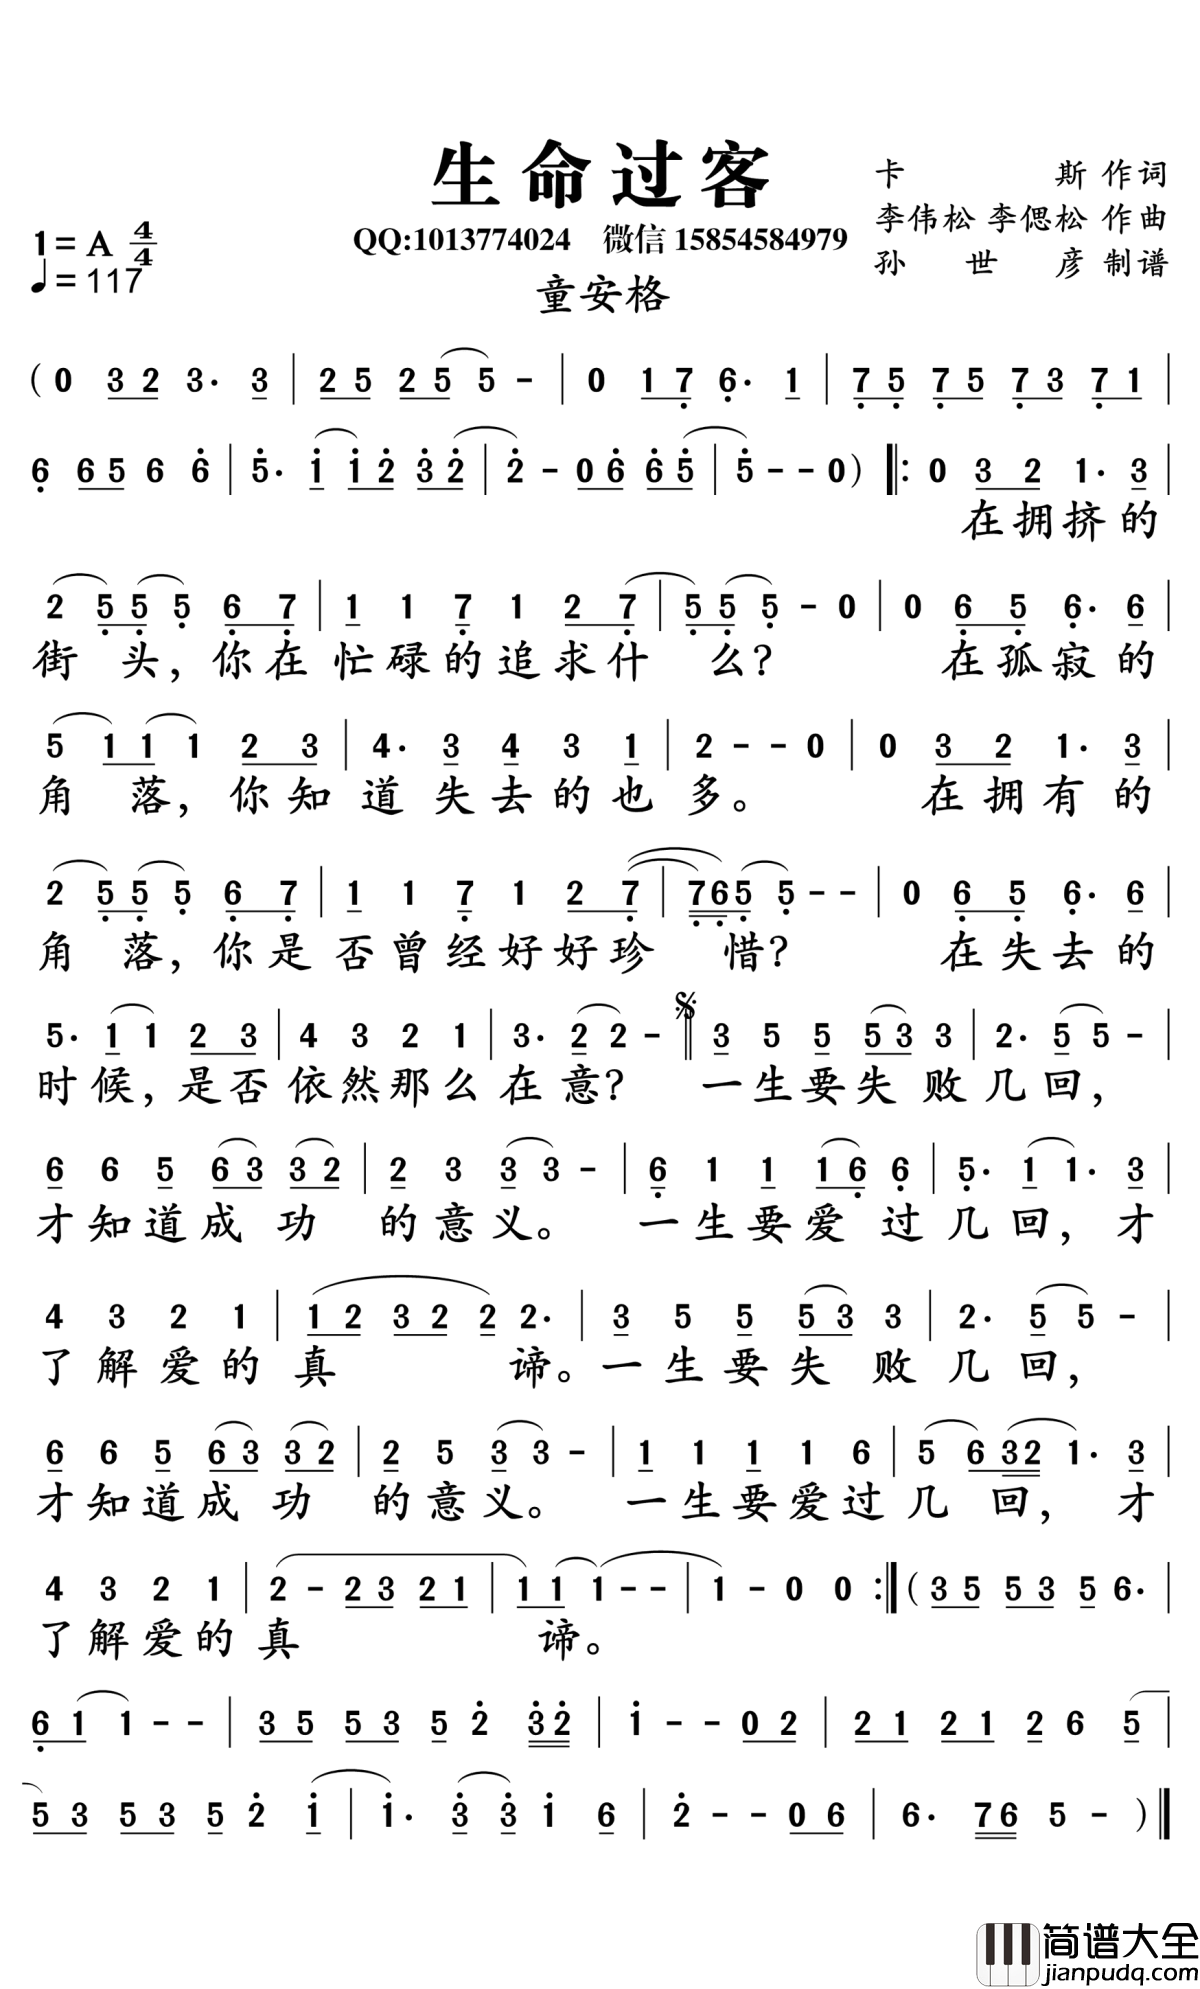 生命过客
卡斯 作词
李伟松 李偲松 作曲
孙世彦 制谱
1=A 4/4
QQ:1013774024 微信 15854584979
♩=117
童安格
( 0 3 2 3. 3 | 2 5 2 5 5 - | 0 1 7 6. 1 | 7 5 7 5 7 3 7 1 |
6 6 5 6 6 | 5. 1 1 2 3 2 | 2 - 0 6 6 5 | 5 - - 0 ) ‖: 0 3 2 1. 3 |
在拥挤的
2 5 5 5 6 7 | 1 1 7 1 2 7 | 5 5 5 - 0 | 0 6 5 6. 6 |
街头,你在忙碌的追求什么? 在孤寂的
5 1 1 1 2 3 | 4. 3 4 3 1 | 2 - - 0 | 0 3 2 1. 3 |
角落,你知道失去的也多。 在拥有的
2 5 5 5 6 7 | 1 1 7 1 2 7 | 7 6 5 5 - - | 0 6 5 6. 6 |
角落,你是否曾经好好珍惜? 在失去的
5. 1 1 2 3 | 4 3 2 1 | 3. 2 2 - 𝄋 ‖ 3 5 5 5 3 3 | 2. 5 5 - |
时候,是否依然那么在意? 一生要失败几回,
6 6 5 6 3 3 2 | 2 3 3 3 - | 6 1 1 1 6 6 | 5. 1 1. 3 |
才知道成功的意义。 一生要爱过几回,才
4 3 2 1 | 1 2 3 2 2 2. | 3 5 5 5 3 3 | 2. 5 5 - |
了解爱的真谛。一生要失败几回,
6 6 5 6 3 3 2 | 2 5 3 3 - | 1 1 1 1 6 | 5 6 3 2 1. 3 |
才知道成功的意义。 一生要爱过几回,才
4 3 2 1 | 2 - 2 3 2 1 | 1 1 1 - - | 1 - 0 0 :‖ ( 3 5 5 3 5 6. |
了解爱的真谛。
6 1 1 - - | 3 5 5 3 5 2 3 2 | 1 - - 0 2 | 2 1 2 1 2 6 5 |
5 3 5 3 5 2 1 | 1. 3 3 1 6 | 2 - - 0 6 | 6. 7 6 5 - ) ‖
简谱大全
jianpudq.com